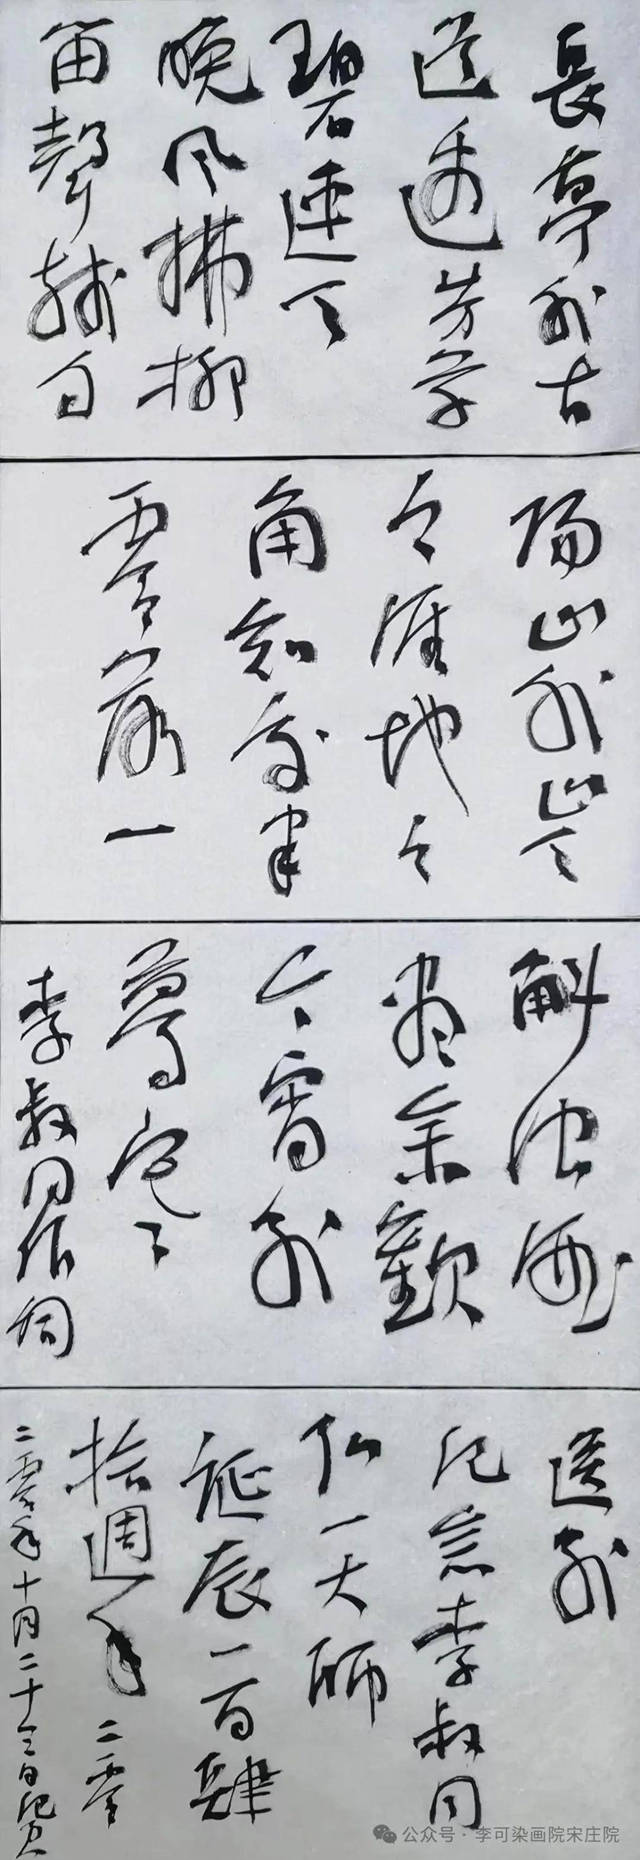 長亭外古
道邊芳草
碧連天
晚風拂柳
笛聲殘夕
陽山外山天
之涯地之
角知交半
零落一
斛濁酒
盡余歡
今宵別
夢寒
李叔同作詞
送別
纪念李叔同
弘一大師
誕辰一百肆
拾週年 二零
二零年十月二十三日
公众号·李可染画院宋庄院